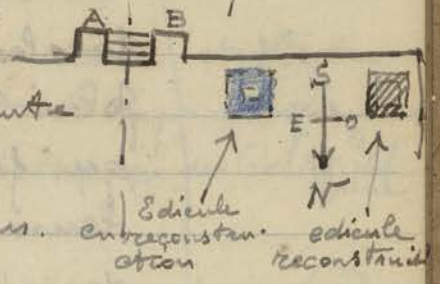 A B
S
E O
N
Edicule
en reconstru-
ction
edicule
reconstruit